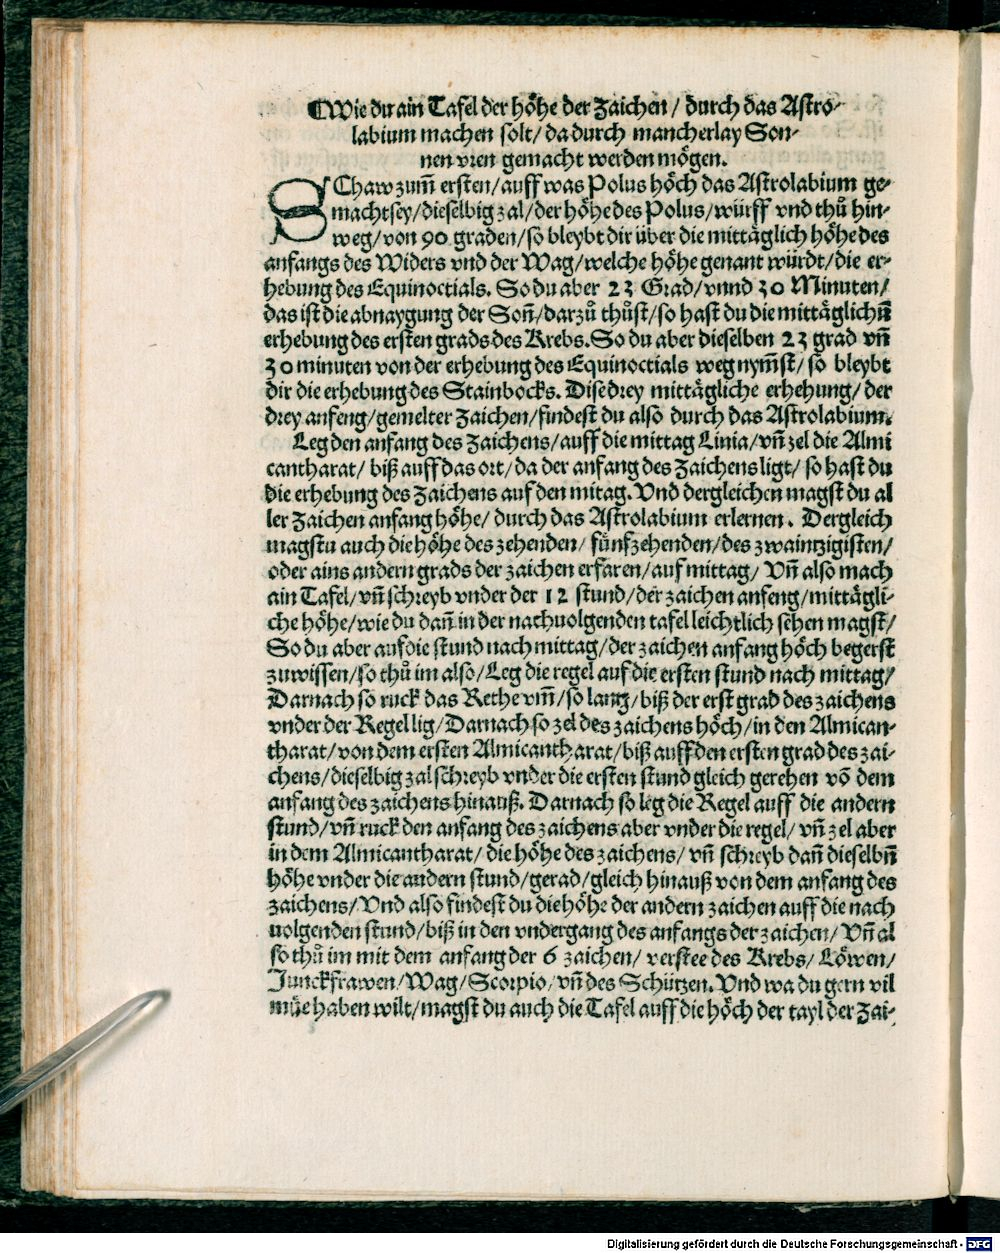 Wie du ain Tafel der höhe der Zaichen / durch das Astro-
labium machen solt / da durch mancherlay Son-
nen vren gemacht werden mögen.
SChaw zum̃ ersten / auff was Polus höch das Astrolabium ge-
macht sey / dieselbig zal / der höhe des Polus / würff vnd thů hin-
weg / von 90 graden / so bleybt dir über die mittäglich höhe des
anfangs des Widers vnd der Wag / welche höhe genant würdt / die er-
hebung des Equinoctials. So du aber 23 Grad / vnnd 30 Minuten /
das ist die abnaygung der Son̄ / darzů thůst / so hast du die mittäglichn̄
erhebung des ersten grads des Krebs. So du aber dieselben 23 grad vn̄
30 minuten von der erhebung des Equinoctials weg nym̄st / so bleybt
dir die erhebung des Stainbocks. Dise drey mittägliche erhehung / der
drey anfeng / gemelter Zaichen / findest du also durch das Astrolabium.
Leg den anfang des Zaichens / auff die mittag Linia / vn̄ zel die Almi
cantharat / biß auff das ort / da der anfang des Zaichens ligt / so hast du
die erhebung des Zaichens auf den mitag. Vnd dergleichen magst du al
ler Zaichen anfang höhe / durch das Astrolabium erlernen. Dergleich
magstu auch die höhe des zehenden / fünfzehenden / des zwaintzigisten /
oder ains andern grads der zaichen erfaren / auf mittag / Vn̄ also mach
ain Tafel / vn̄ schreyb vnder der 12 stund / der zaichen anfeng / mittägli-
che höhe / wie du dan̄ in der nachuolgenden tafel leichtlich sehen magst /
So du aber auf die stund nach mittag / der zaichen anfang höch begerst
zu wissen / so thů im also / Leg die regel auf die ersten stund nach mittag /
Darnach so ruck das Rethe vm̄ / so lang / biß der erst grad des zaichens
vnder der Regel lig / Darnach so zel des zaichens höch / in den Almican-
tharat / von dem ersten Almicantharat / biß auff den ersten grad des zai-
chens / dieselbig zal schreyb vnder die ersten stund gleich gerehen vō dem
anfang des zaichens hinauß. Darnach so leg die Regel auff die andern
stund / vn̄ ruck den anfang des zaichens aber vnder die regel / vn̄ zel aber
in dem Almicantharat / die höhe des zaichens / vn̄ schreyb dan̄ dieselbn̄
höhe vnder die andern stund / gerad / gleich hinauß von dem anfang des
zaichens / Vnd also findest du die höhe der andern zaichen auff die nach
uolgenden stund / biß in den vndergang des anfangs der zaichen / Vn̄ al
so thů im mit dem anfang der 6 zaichen / verstee des Krebs / Löwen /
Junckfrawen / Wag / Scorpio / vn̄ des Schützen. Vnd wa du gern vil
müe haben wilt / magst du auch die Tafel auff die höch der tayl der Zai-
Digitalisierung gefördert durch die Deutsche Forschungsgemeinschaft - DFG